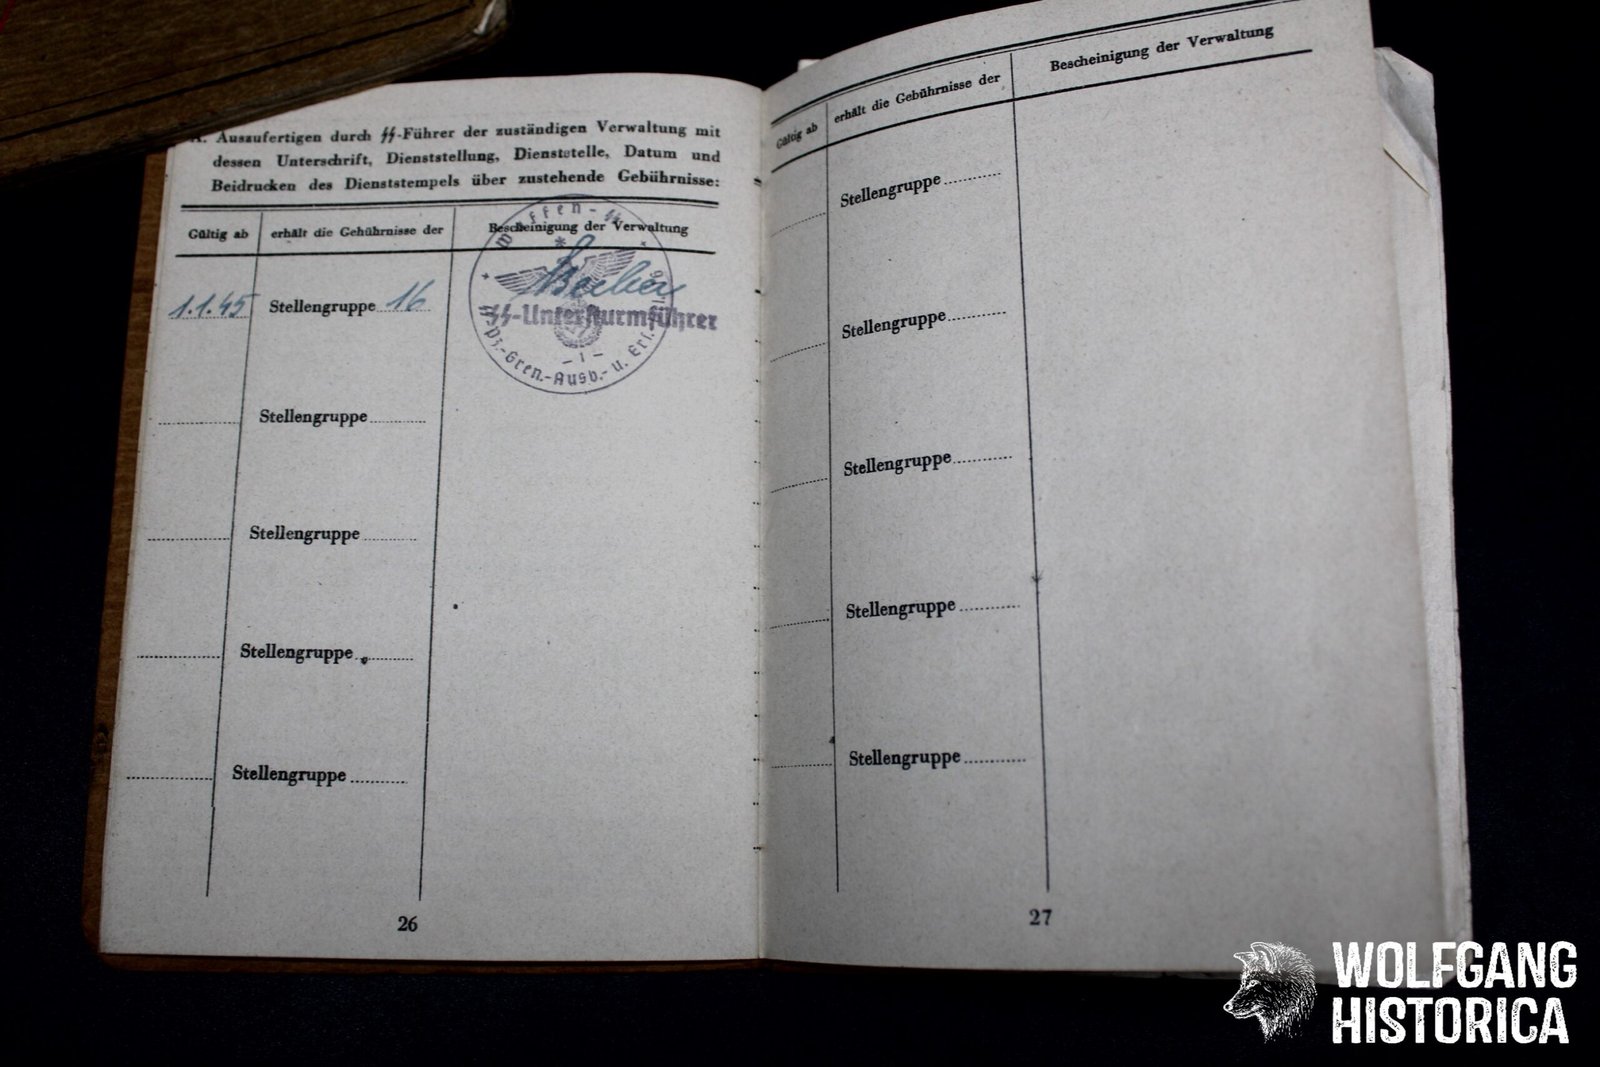 A. Auszufertigen durch ᛋᛋ-Führer der zuständigen Verwaltung mit
dessen Unterschrift, Dienststellung, Dienststelle, Datum und
Beidrucken des Dienststempels über zustehende Gebührnisse:
Gültig ab erhält die Gebührnisse der Bescheinigung der Verwaltung
Waffen-ᛋᛋ
1.1.45 Stellengruppe 16
ᛋᛋ-Untersturmführer
- 1 -
ᛋᛋ-Pz.-Gren.-Ausb.- u. Ers.
Stellengruppe
Stellengruppe
Stellengruppe
Stellengruppe
26
Gültig ab erhält die Gebührnisse der Bescheinigung der Verwaltung
Stellengruppe
Stellengruppe
Stellengruppe
Stellengruppe
Stellengruppe
27
WOLFGANG
HISTORICA